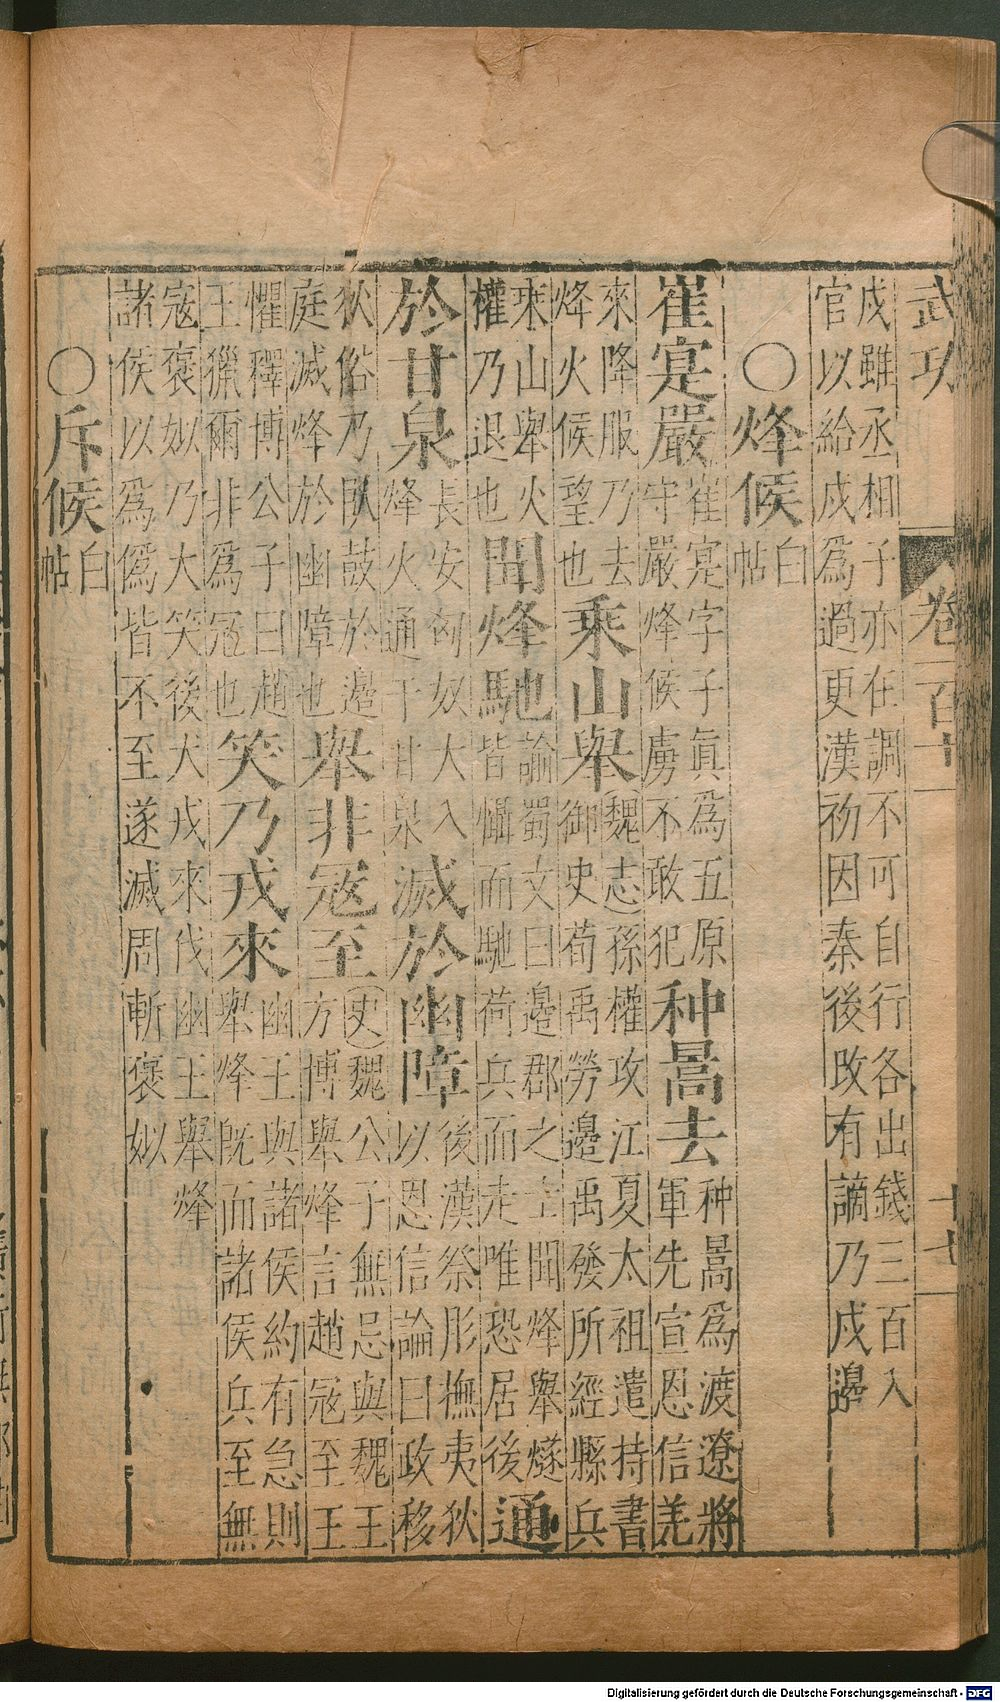 武功 卷一百十 十七
戍雖丞相子亦在調不可自行各出錢三百入
官以給戍為過更漢初因秦後改有謫乃戍邊
○烽候 白帖
崔寔嚴 崔寔字子眞為五原守嚴烽候虜不敢犯 种暠去 种暠為渡遼將軍先宣恩信羌
來降服乃去烽火候望也 乘山舉 (魏志)孫權攻江夏太祖遣持書御史荀禹勞邊禹發所經縣兵
乘山舉火權乃退也 聞烽馳 諭蜀文曰邊郡之士聞烽舉燧皆懾而馳荷兵而走唯恐居後 通
於甘泉 長安匈奴大入烽火通于甘泉 滅於幽障 後漢祭肜撫夷狄以恩信論曰政移
狄俗乃臥鼓於邊庭滅烽於幽障也 舉非寇至 (史)魏公子無忌與魏王方博舉烽言趙寇至王
懼釋博公子曰趙王獵爾非為寇也 笑乃戎來 幽王與諸侯約有急則舉烽既而諸侯兵至無
寇褒姒乃大笑後犬戎來伐幽王舉烽
諸侯以為偽皆不至遂滅周斬褒姒
○斥候 白帖
Digitalisierung gefördert durch die Deutsche Forschungsgemeinschaft - DFG